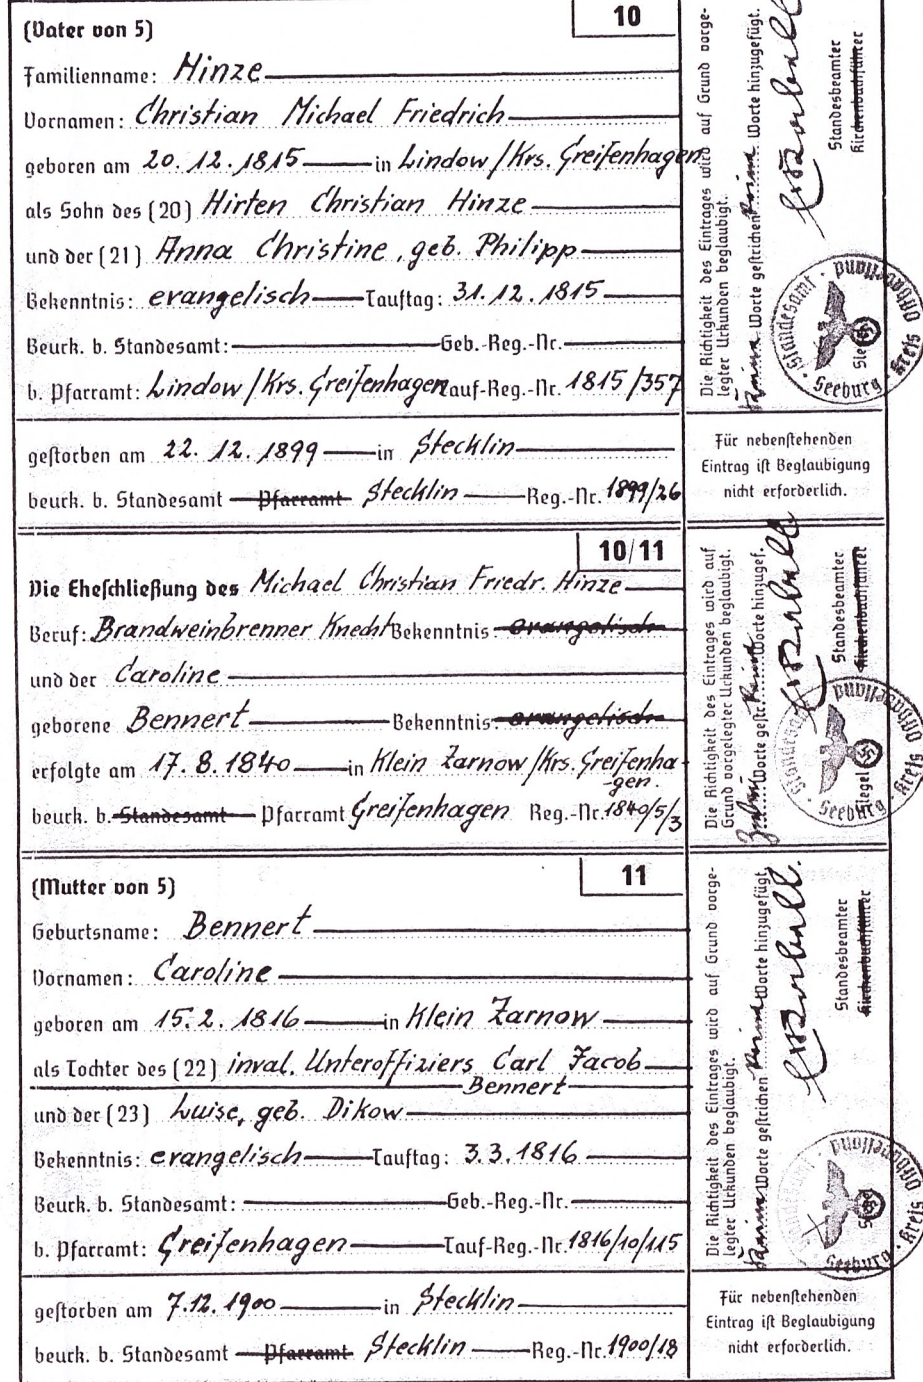 (Vater von 5)
10
Familienname: Hinze
Vornamen: Christian Michael Friedrich
geboren am 20.12.1815 in Lindow/Krs. Greifenhagen
als Sohn des (20) Hirten Christian Hinze
und der (21) Anna Christine, geb. Philipp
Bekenntnis: evangelisch Tauftag: 31.12.1815
Beurk. b. Standesamt: Geb.-Reg.-Nr.
b. Pfarramt: Lindow/Krs. Greifenhagen Tauf-Reg.-Nr. 1815/357
gestorben am 22.12.1899 in Stecklin
beurk. b. Standesamt Pfarramt Stecklin Reg.-Nr. 1899/26
Die Richtigkeit des Eintrages wird auf Grund vorge-
legter Urkunden beglaubigt.
Keine Worte gestrichen keine Worte hinzugefügt.
Standesbeamter
Kirchenbuchführer
Standesamt · Seeburg · Kreis Osthavelland
Siegel
Für nebenstehenden
Eintrag ist Beglaubigung
nicht erforderlich.
10/11
Die Eheschließung des Michael Christian Friedr. Hinze
Beruf: Brandweinbrenner Knecht Bekenntnis: evangelisch
und der Caroline
geborene Bennert Bekenntnis: evangelisch
erfolgte am 17.8.1840 in Klein Zarnow/Krs. Greifenha
-gen.
beurk. b. Standesamt Pfarramt Greifenhagen Reg.-Nr. 1840/5/3
Die Richtigkeit des Eintrages wird auf
Grund vorgelegter Urkunden beglaubigt.
Worte gestr. keine Worte hinzugef.
Standesbeamter
Kirchenbuchführer
Standesamt · Seeburg · Kreis Osthavelland
Siegel
(Mutter von 5)
11
Geburtsname: Bennert
Vornamen: Caroline
geboren am 15.2.1816 in Klein Zarnow
als Tochter des (22) inval. Unteroffiziers Carl Jacob
Bennert
und der (23) Luise, geb. Dikow
Bekenntnis: evangelisch Tauftag: 3.3.1816
Beurk. b. Standesamt: Geb.-Reg.-Nr.
b. Pfarramt: Greifenhagen Tauf-Reg.-Nr. 1816/10/115
gestorben am 7.12.1900 in Stecklin
beurk. b. Standesamt Pfarramt Stecklin Reg.-Nr. 1900/18
Die Richtigkeit des Eintrages wird auf Grund vorge-
legter Urkunden beglaubigt.
Keine Worte gestrichen keine Worte hinzugefügt.
Standesbeamter
Kirchenbuchführer
Standesamt · Seeburg · Kreis Osthavelland
Siegel
Für nebenstehenden
Eintrag ist Beglaubigung
nicht erforderlich.